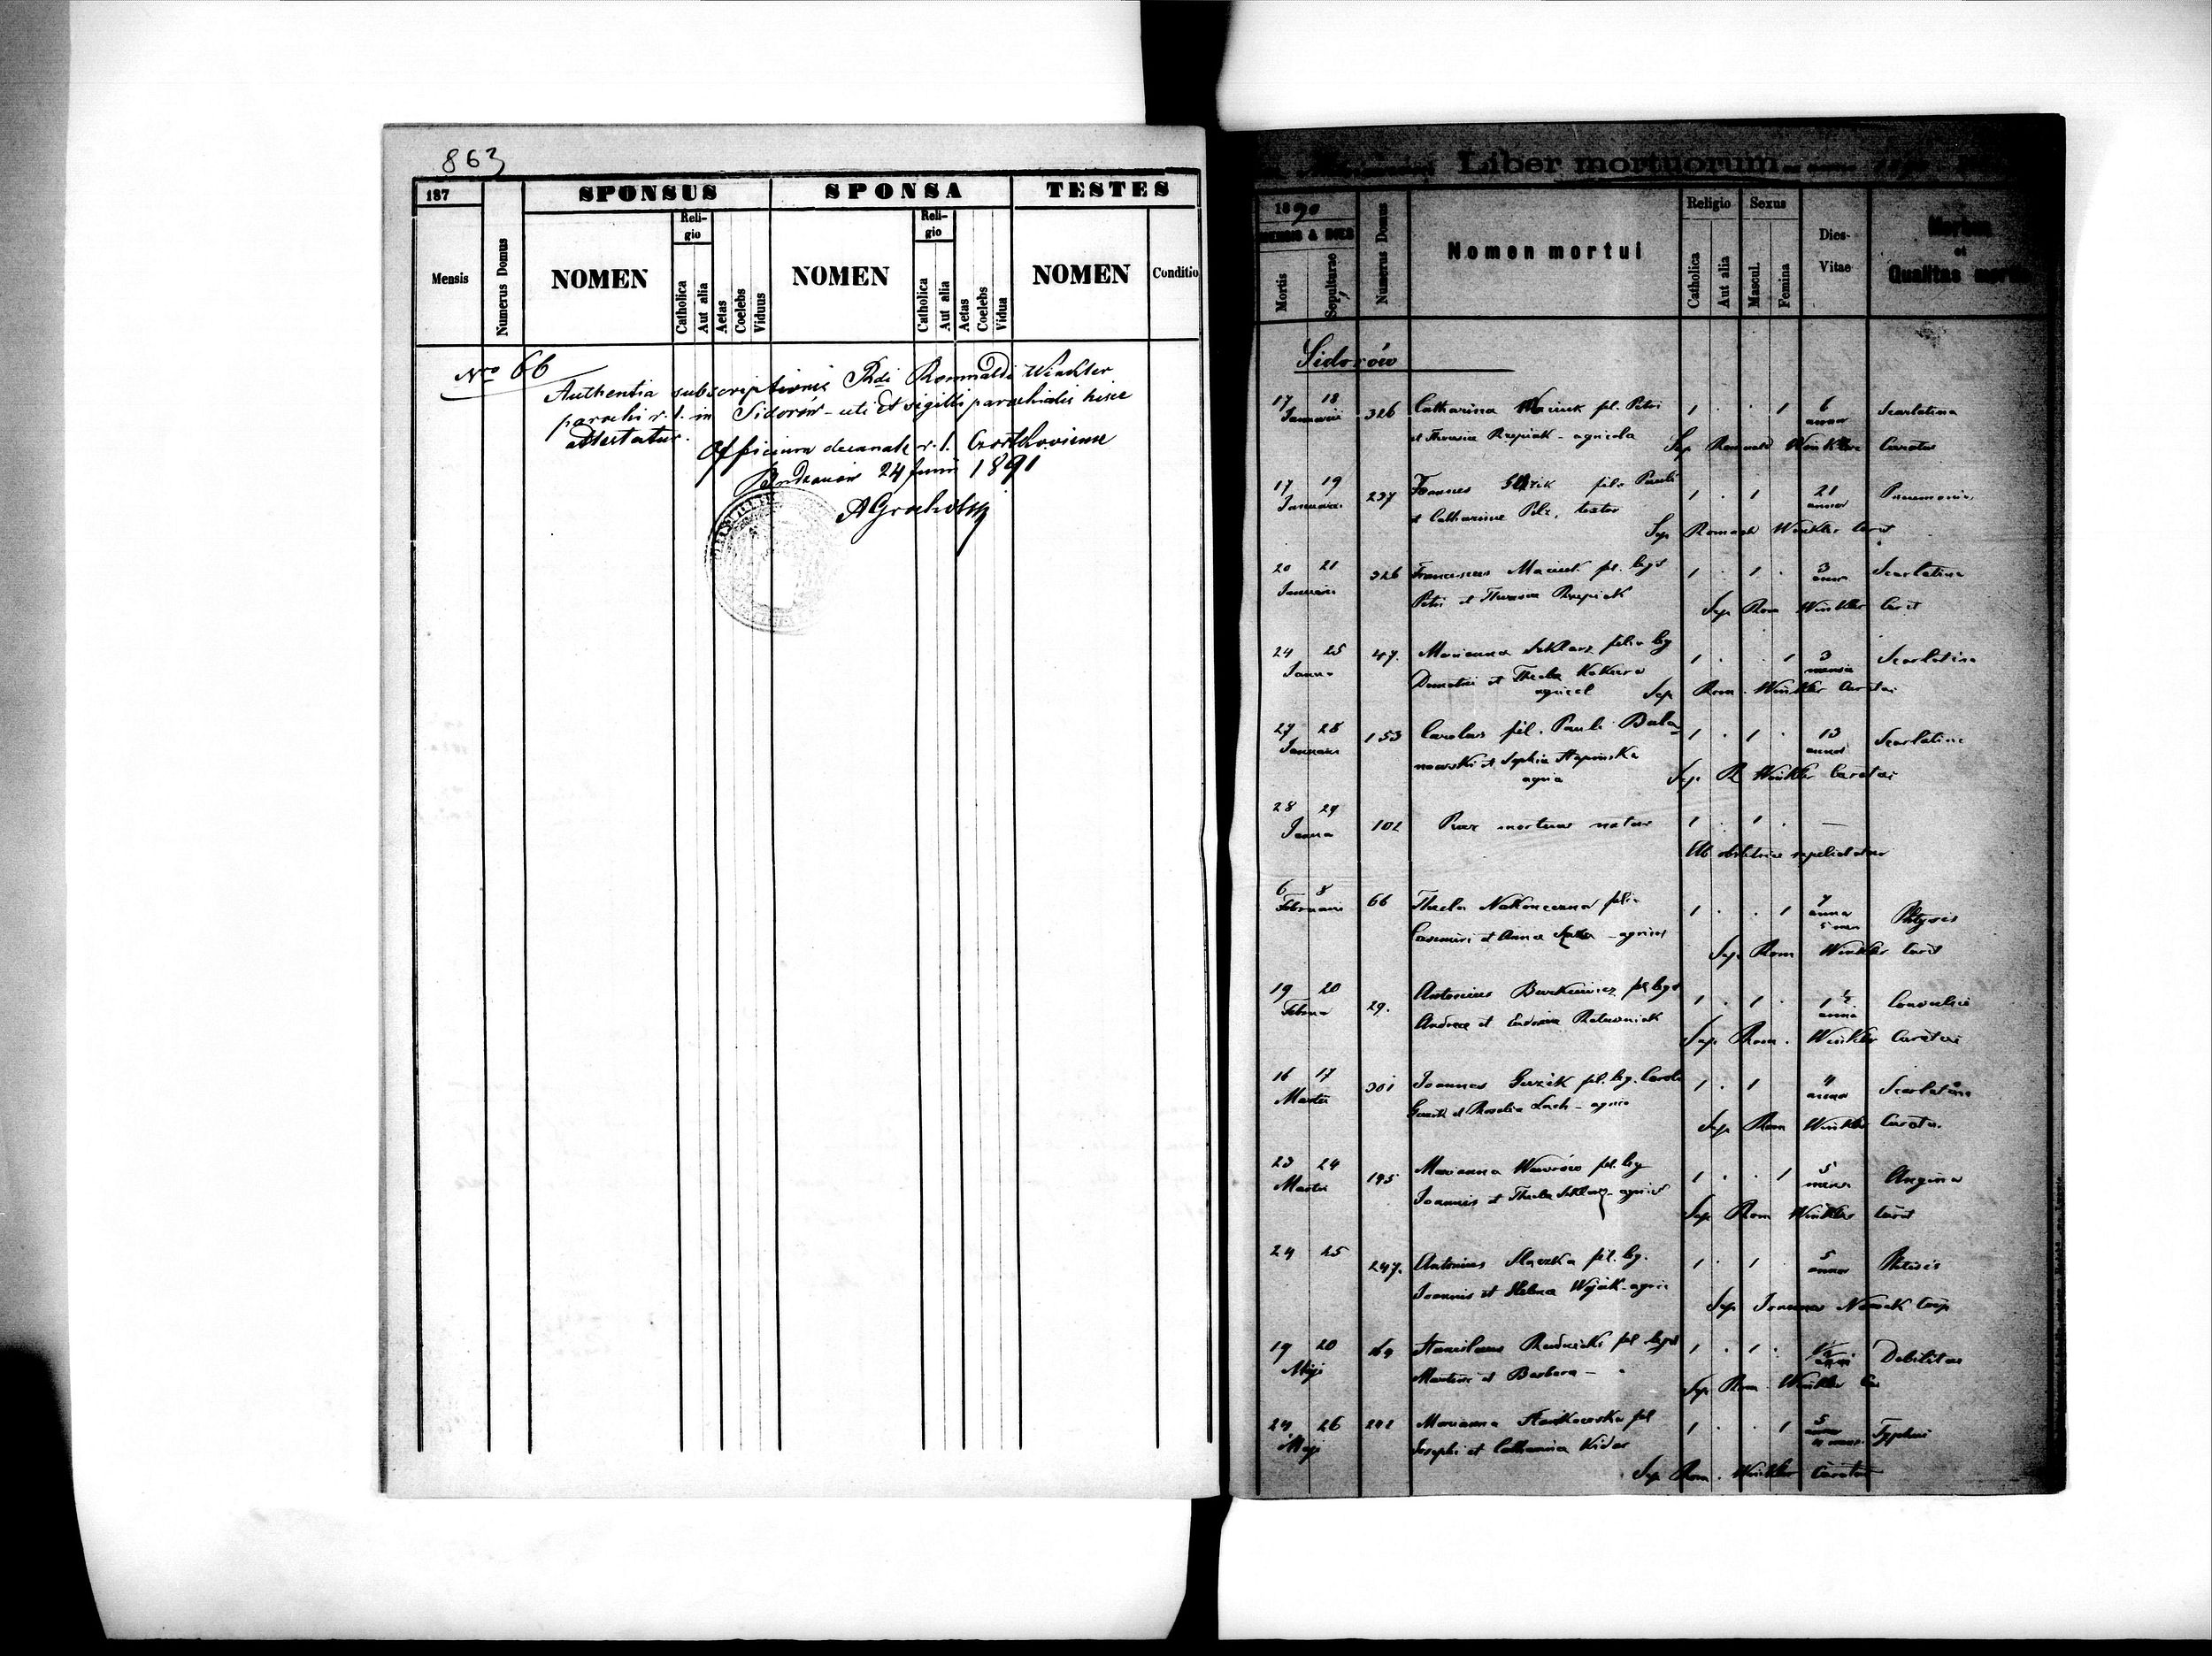 863
187
SPONSUS SPONSA TESTES
Mensis Numerus Domus NOMEN Religio Catholica Aut alia Aetas Coelebs Viduus NOMEN Religio Catholica Aut alia Aetas Coelebs Vidua NOMEN Conditio
Nro 66
Authentia subscriptionis Rdi Romualdi Winkler
parochi r. l. in Sidorów - uti et sigilli parochialis hisce
attestatur.
Officium decanale r. l.
24 Junii 1891
Liber mortuorum
1890
MENSIS & DIES
Mortis Sepulturae Numerus Domus Nomen mortui Religio Catholica Aut alia Sexus Mascul. Femina Dies Vitae Morbus et Qualitas mortis
Sidorów
17 18 Januarii 326 Catharina Maciuk fil. Petri 1 . . 1 6 annor Scarlatina
et Theresiae Rzepiak - agricola Sep Romuald Winkler Curatus
17 19 Januarii 237 Joannes fil. Pauli 1 . 1 21 annor Pneumonia
et Catharinae Pelz, textor Sep Romuald Winkler Curat
20 21 Januarii 326 Franciscus Maciuk fil. legit 1 . 1 . 3 annor Scarlatina
Petri et Theresiae Rzepiak Sep Rom Winkler Curat
24 25 Janua 47. Marianna Szklarz filia leg 1 . . 1 3 mensis Scarlatina
Demetrii et Thecla agricol Sep Rom. Winkler Curatus
27 28 Januarii 153 Carolus fil. Pauli Bala- 1 . 1 . 13 annor Scarlatina
nowski et Sophia agric Sep R Winkler Curatus
28 29 Janua 102 Puer mortuus natus 1 . 1 . —
Ab obstetrice sepeliebatur
6 8 Februarii 66 Thecla Nakoneczna filia 1 . . 1 7 annor 5 men Phtysis
Casimiri et Anna - agricol Sep Rom Winkler Curat
19 20 Februa 29. Antonius Burkiewicz fil legit 1 . 1 . 1 ½ anna Convulsio
Andreae et Sep Rom. Winkler Curatus
16 17 Martii 301 Joannes Guzik fil. leg. Caroli 1 . 1 4 annor Scarlatina
Guzik et Rosalia Lach - agric Sep Rom Winkler Curatu.
23 24 Martii 195 Marianna Wawrów fil. leg 1 . . 1 5 mens Angina
Joannis et Thecla Szklarz - agricol Sep Rom Winkler Curat
24 25 247. Antonius fil. leg. 1 . 1 5 annor Phtisis
Joannis et Helena Wójcik - agric Sep Joannes Nowak Coop
19 20 Maji 69 Stanislaus Rudnicki fil legit 1 . 1 . ½ Debilitas
Martini et Barbara - Sep Rom. Winkler Cu
24 26 Maji Marianna fil 1 . . 1 5 Typhus
Josephi et Catharina Sep Rom. Winkler Curatus